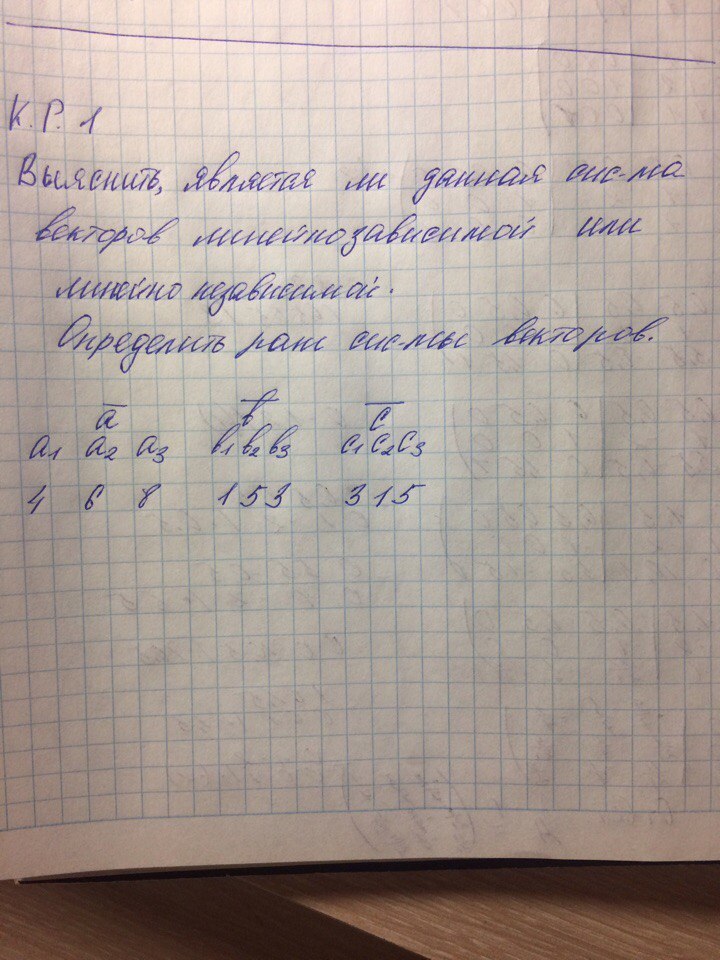 К. Р. 1
Выяснить, является ли данная сис-ма
векторов линейнозависимой или
линейно независимой.
Определить ранг сис-мы векторов.
a̅ в̅ c̅
a₁ a₂ a₃ в₁ в₂ в₃ c₁ c₂ c₃
4 6 8 1 5 3 3 1 5